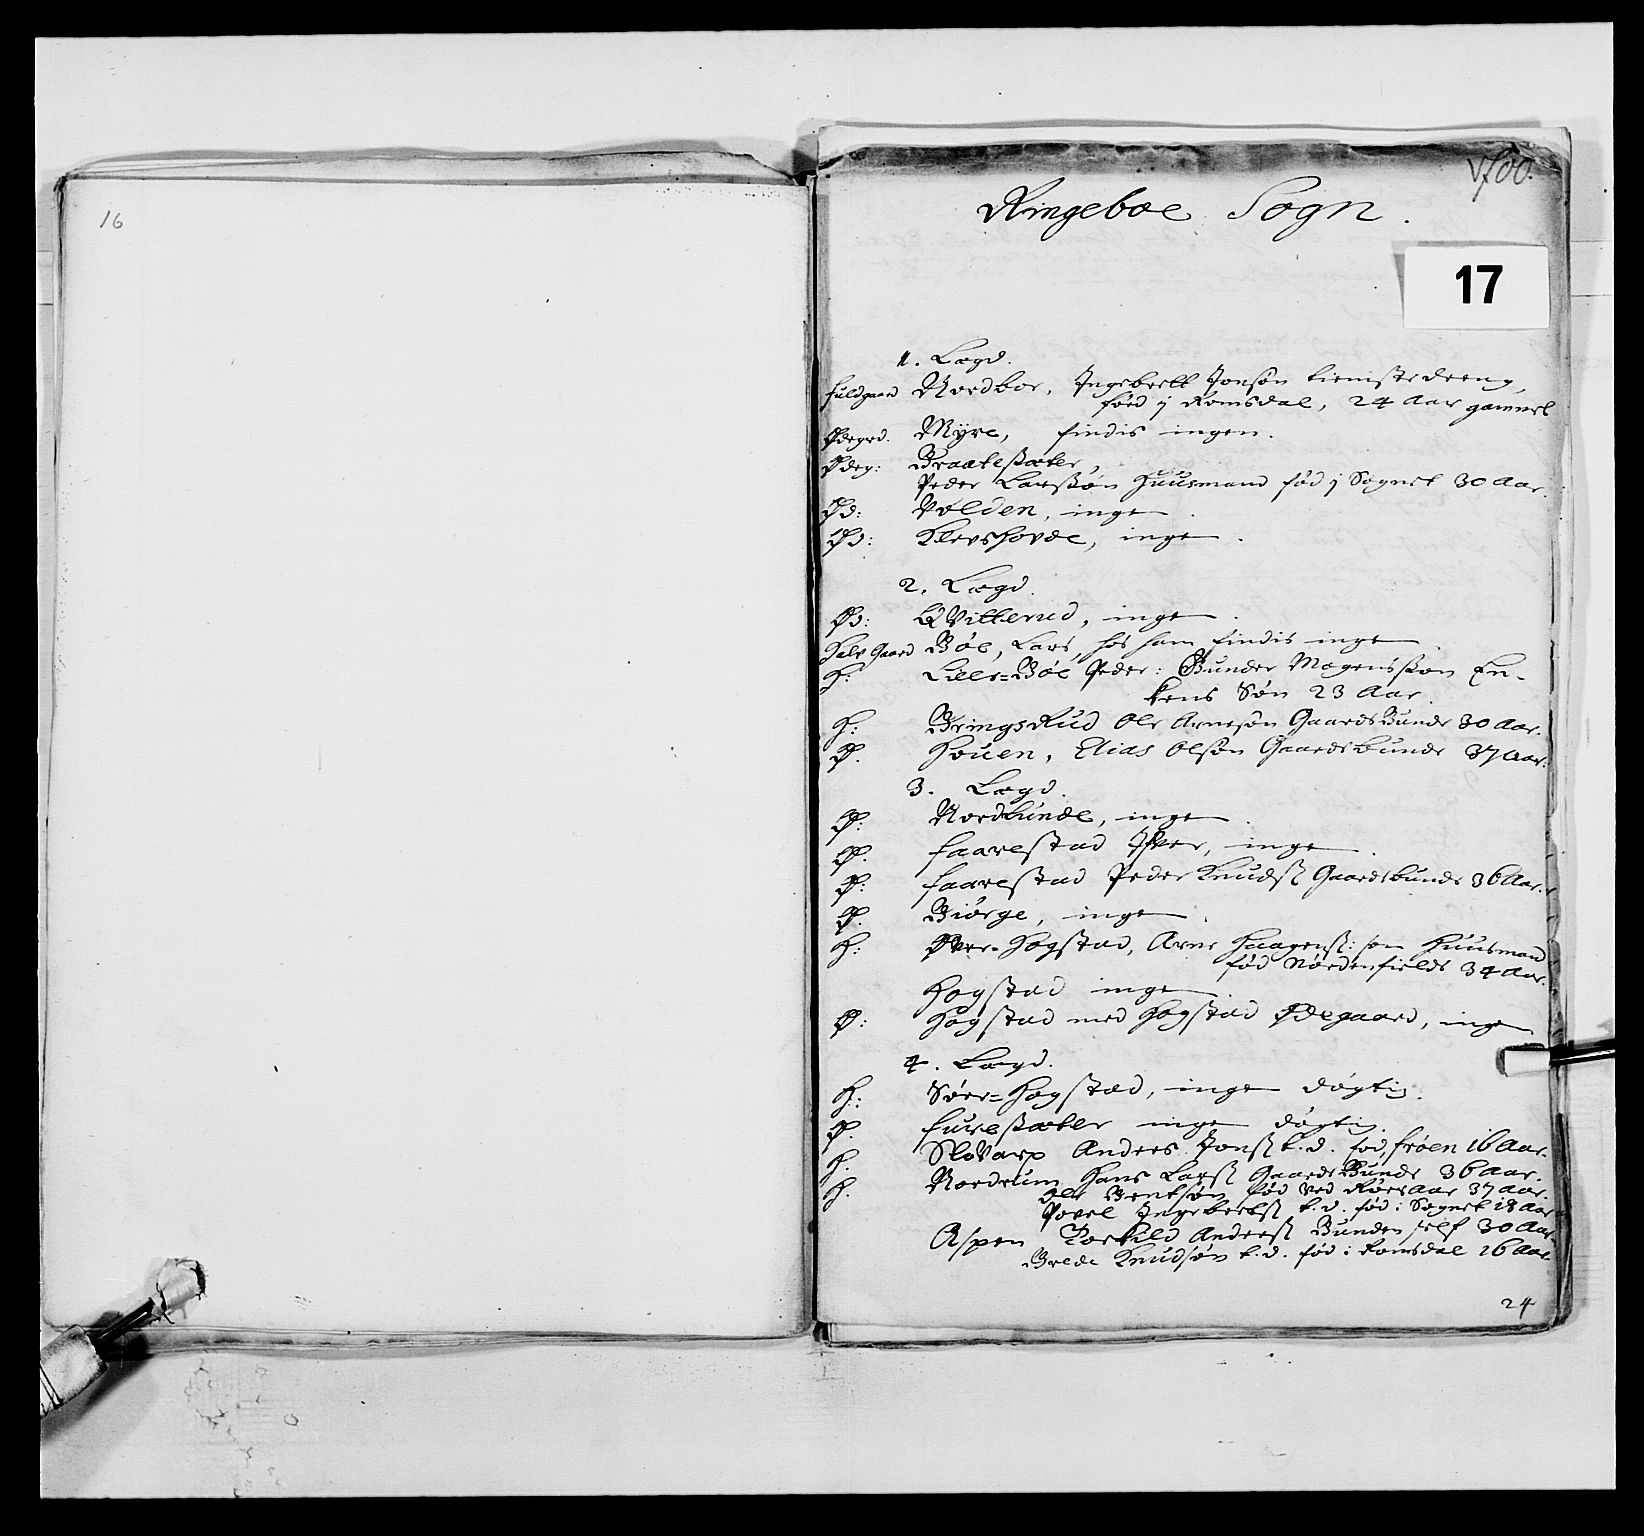 16
1700.
Ringeboe Sogn.
17
1. Lægd.
fuldgaard Nordbor, Ingebrett Jonsøn tienistedreng,
fød j Romsdal, 24 Aar gammel
Ødegrd. Myre, findis ingen.
Ødeg: Braatesæter
Peder Larssøn Huusmand fød j Sognet 30 Aar.
Ød: Volden, ingen.
Ød: Klevshovde, ingen.
2. Lægd.
Ød: Qvitterud, ingen.
Halv Gaard Bøe, Lars, hos ham findis ingen
H: Lille=Bøe Peder: Gunder Mogenssøn En-
kens Søn 23 Aar.
H: BringsRud Ole Arnesøn Gaards Bunde 30 Aar.
Ø. Houen, Elias Olsøn Gaards bunde 37 Aar.
3. Lægd.
Ø: Nordlunde, ingen.
Ø. faarestad Ifver, ingen.
Ø: faarestad Peder Knuds: Gaardsbunde 36 Aar.
Ø. Biørge, ingen.
H: Øver=Hogstad, Arne Haagens: som Huusmand
fød Nordenfields 34 Aar.
Hogstad ingen
Ø: Hogstad med Hogstad Ødegaard, ingen
4. Lægd.
H: Søer=Hogstad, ingen døgtig.
Ø. furesæter ingen døgtig.
H. Anders Jons: t.d. fød, frøen 16 Aar.
H. Nordrum Hans Lars: Gaards Bunde 36 Aar.
Ole Bentsøn fød ved Røraas 37 Aar.
Povel Ingebrets: t.d. fød i Sognet 18 Aar
Aspen Torkild Anders: Bunden self 30 Aar.
Brede Knudsøn t.d. fød i Romsdal 16 Aar.
24